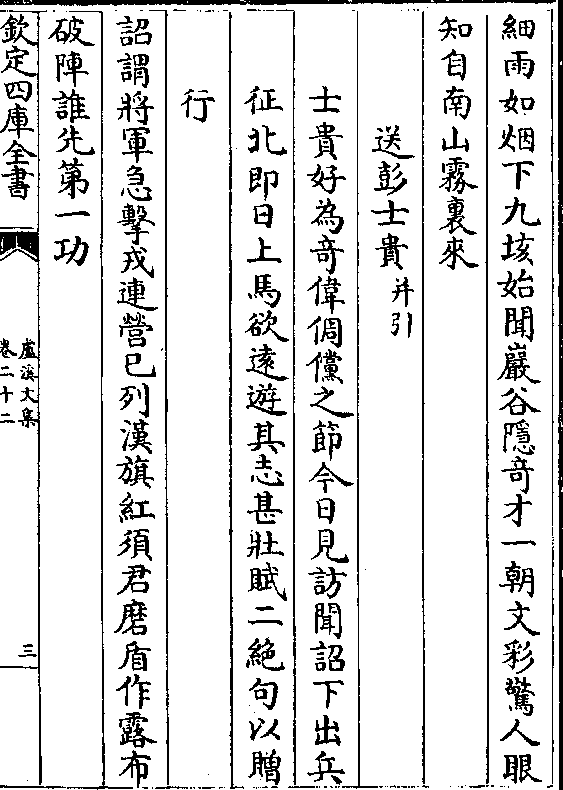 細雨如烟下九垓始聞巖谷隠竒才一朝文彩驚人眼
知自南山霧裏來
送彭士貴并引
士貴好為竒偉倜儻之節今日見訪聞詔下出兵
征北即日上馬欲逺遊其志甚壯賦二絶句以贈
行
詔謂將軍急擊戎連營已列漢旗紅須君磨盾作露布
破陣誰先第一功
欽定四庫全書
盧溪文集
卷二十二
三